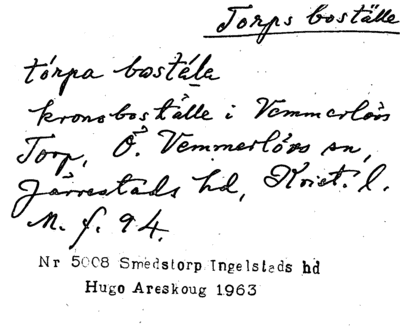 Torps boställe
tórpa bostéla
kronoboställe i Vemmerlövs
Torp, Ö. Vemmerlövs sn,
Järrestads hd, Krist. l.
M. f. 94.
Nr 5008 Smedstorp Ingelsteds hd
Hugo Areskoug 1963